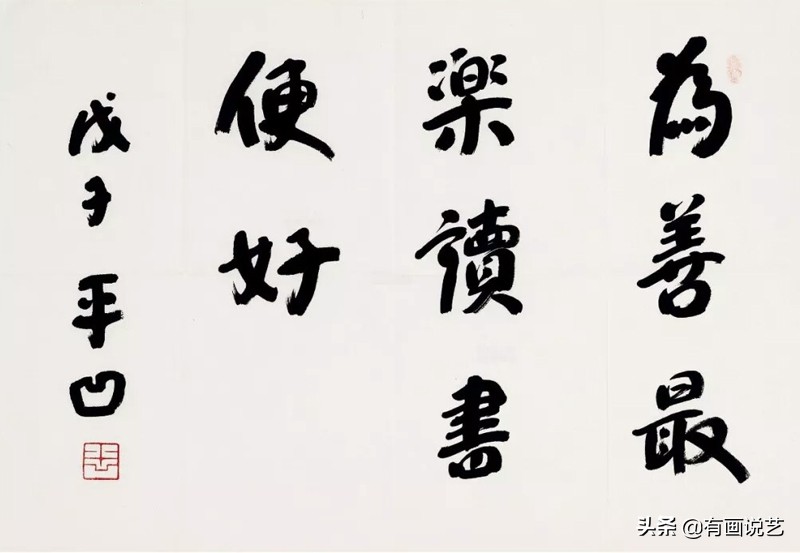 為善最
楽讀書
便好
戊子 平凹
头条 @有画说艺